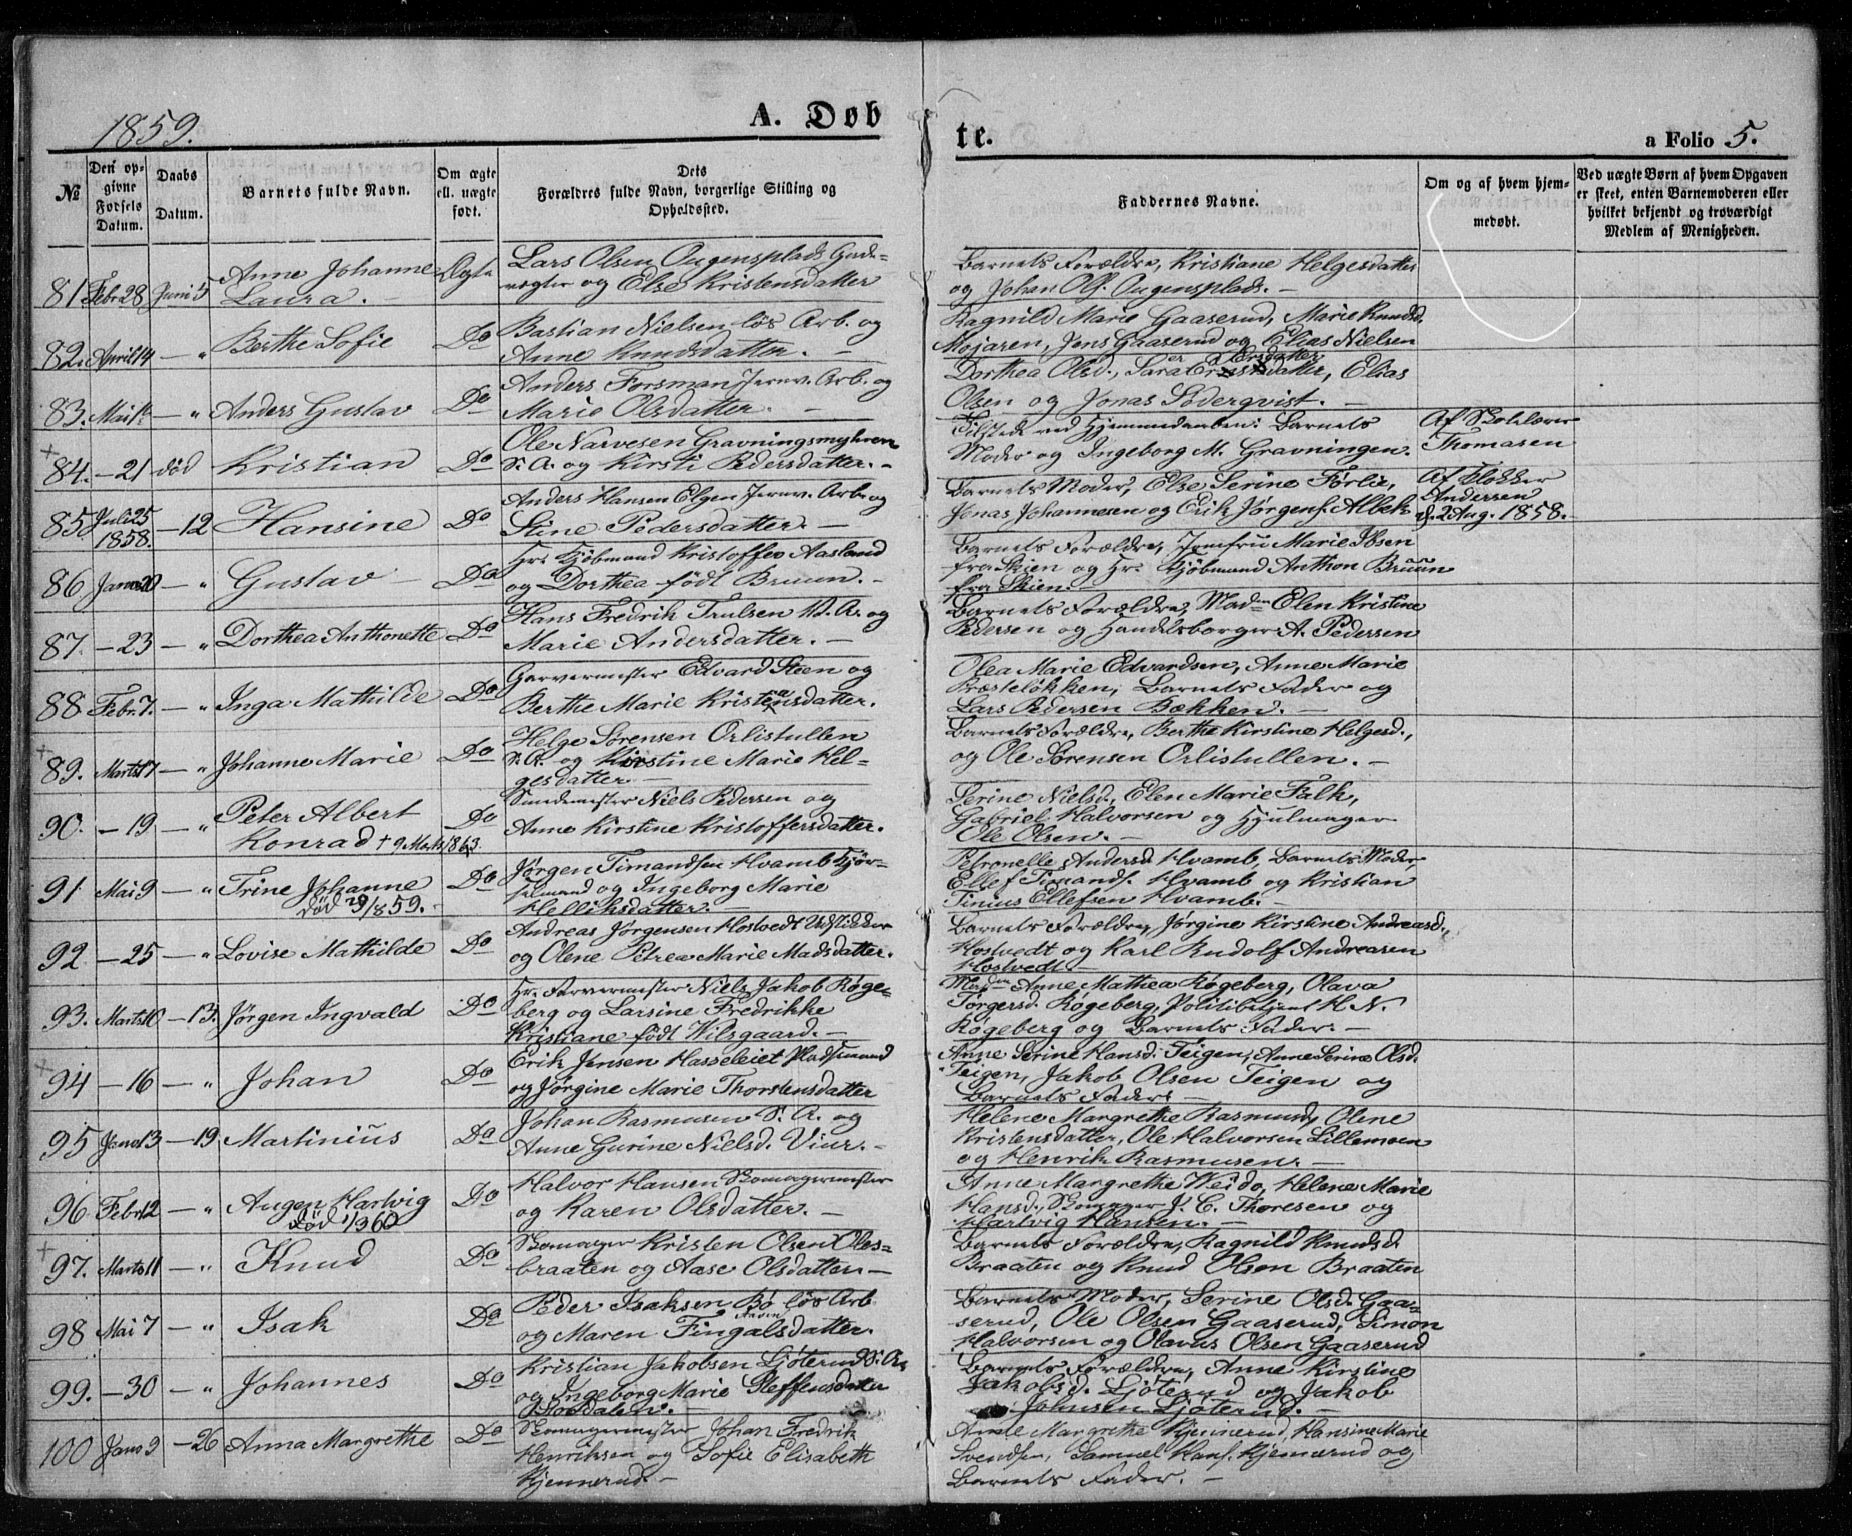 1859.
A. Døb
te.
a Folio 5.
№
Den opgivne Fødsels Datum.
Daabs Datum.
Barnets fulde Navn.
Om ægte ell. uægte født.
Dets Forældres fulde Navn, borgerlige Stilling og Opholdssted.
Faddernes Navne.
Om og af hvem hjemmedøbt.
Ved uægte Børn af hvem Opgaven er skeet, enten Barnemoderen eller hvilket bekjendt og troværdigt Medlem af Menigheden.
81 Febr 28 Juni 5 Anne Johanne Laura. Ægte
Lars Olsen Augensplads Gade-
vægter og Else Kristensdatter
Barnets Forældre, Kristiane Helgesdatter
og Johan Ols. Augensplads.
82. April 14 — „ Berthe Sofie Do
Bastian Nielsen løs Arb. og
Anne Knudsdatter.
Ragnild Marie Gaaserud, Marie Knudsd.
Mojaren, Jens Gaaserud og Elias Nielsen
83. Mai — „ Anders Gustav Do
Anders Forsman Jernv. Arb. og
Marie Olsdatter.
Dorthea Olsd., Sara Ersdatter, Elias
Olsen og Jonas Søderqvist.
+ 84. — 21 død Kristian Do
Ole Narvesen Gravningsmyhren
S. A. og Kirsti Pedersdatter.
Tilstede ved Hjemmedaaben: Barnets
Moder og Ingeborg M. Gravningen.
Af Skolelærer
Thomasen
85 Juli 25 1858. — 12 Hansine Do
Anders Hansen Elgen Jernv. Arb. og
Stine Pedersdatter.
Barnets Moder, Else Serine Førlie,
Jonas Johannesen og Erik Jørgens. Albek
Af Klokker
Andersen
d. 2 Aug. 1858.
86 Janu 20 — „ Gustav Do
Hr. Kjøbmand Kristoffer Aasland
og Dorthea født Bruun.
Barnets Forældre, Jomfru Marie Ibsen
fra Skien og Hr. Kjøbmand Anthon Bruun
fra Skien.
87. — 23 — „ Dorthea Anthonette Do
Hans Fredrik Trulsen V. A. og
Marie Andersdatter.
Barnets Forældre, Madm Elen Kristine
Pedersen og Handelsborger A. Pedersen
88 Febr. 7. — „ Inga Mathilde Do
Garvermester Edvard Steen og
Berthe Marie Kristensdatter.
Olea Marie Edvardsen, Anne Marie
Præsteløkken, Barnets Fader og
Lars Pedersen Bækken.
+ 89. Marts 17 — „ Johanne Marie Do
Helge Sørensen Orlistullen
S. A. og Kirstine Marie Hel-
gesdatter.
Barnets Forældre, Berthe Kirstine Helgesd.,
og Ole Sørensen Orlistullen.
90. — 19 — „ Peter Albert Do
Konrad + 9 Marts 1863.
Smedemester Niels Pedersen og
Anne Kirstine Kristoffersdatter.
Serine Nielsd., Elen Marie Falk,
Gabriel Halvorsen og Hjulmager
Ole Olsen.
91 Mai 9 — „ Trine Johanne Do
død
Jørgen Timandsen Hvamb Kjør-
selmand og Ingeborg Marie
Helliksdatter.
Petronelle Andersd. Hvamb, Barnets Moder,
Ellef Timands. Hvamb og Kristian
Tinius Ellefsen Hvamb.
92 — 25 — „ Lovise Mathilde Do
Andreas Jørgensen Hostvedt Udstikker
og Olene Petrea Marie Madsdatter.
Barnets Forældre, Jørgine Kirstine Andreasd.
Hostvedt og Karl Rudolf Andreasen
Hostvedt
93. Marts 10 — 13. Jørgen Ingvald Do
Hr. Farvermester Niels Jakob Røge-
berg og Larsine Fredrikke
Kristiane født Wilsgaard.
Madm Anne Mathea Røgeberg, Olava
Torgersd. Røgeberg, Politibetjent H. N.
Røgeberg og Barnets Fader.
+ 94 — 16 — „ Johan Do
Erik Jensen Hasseleiet Pladsmand
og Jørgine Marie Thorstensdatter
Anne Serine Hansd. Teigen, Anne Serine Olsd.
Teigen, Jakob Olsen Teigen og
Barnets Fader
95 Janu 13 — 19 Martinius Do
Johan Rasmusen S. A. og
Anne Gurine Nielsd. Viur.
Helene Margrethe Rasmusd, Olene
Kristensdatter, Ole Halvorsen Lillemoen
og Henrik Rasmusen.
96 Febr 12 — „ Augen Hartvig Do
død 1/3 60
Halvor Hansen Skomagermester
og Karen Olsdatter.
Anne Margrethe Weido, Helene Marie
Hansd., Skomager J. C. Thoresen og
Hartvig Hansen.
+ 97. Marts 11 — „ Knud Do
Skomager Kristen Olsen Oles-
braaten og Aase Olsdatter.
Barnets Forældre, Ragnild Knudsd.
Braaten og Knud Olsen Braaten
98 Mai 7 — „ Isak Do
Peder Isaksen Bø løs Arb.
og Maren Fingalsdatter.
Barnets Moder, Serine Olsd. Gaa-
serud, Ole Olsen Gaaserud, Simon
Halvorsen og Olavus Olsen Gaaserud
99. — 30 — „ Johannes Do
Kristian Jakobsen Ljøterud S. A.
og Ingeborg Marie Steffensdatter
Stordalen.
Barnets Forældre, Anne Kirstine
Jakobsd. Ljøterud og Jakob
Johnsen Ljøterud.
100 Janu 9 — 26 Anna Margrethe Do
Skomagermester Johan Fredrik
Henriksen og Sofie Elisabeth
Kjennerud.
Anne Margrethe Kjennerud, Hansine Marie
Svendsen, Samuel Hans. Kjennerud og
Barnets Fader.